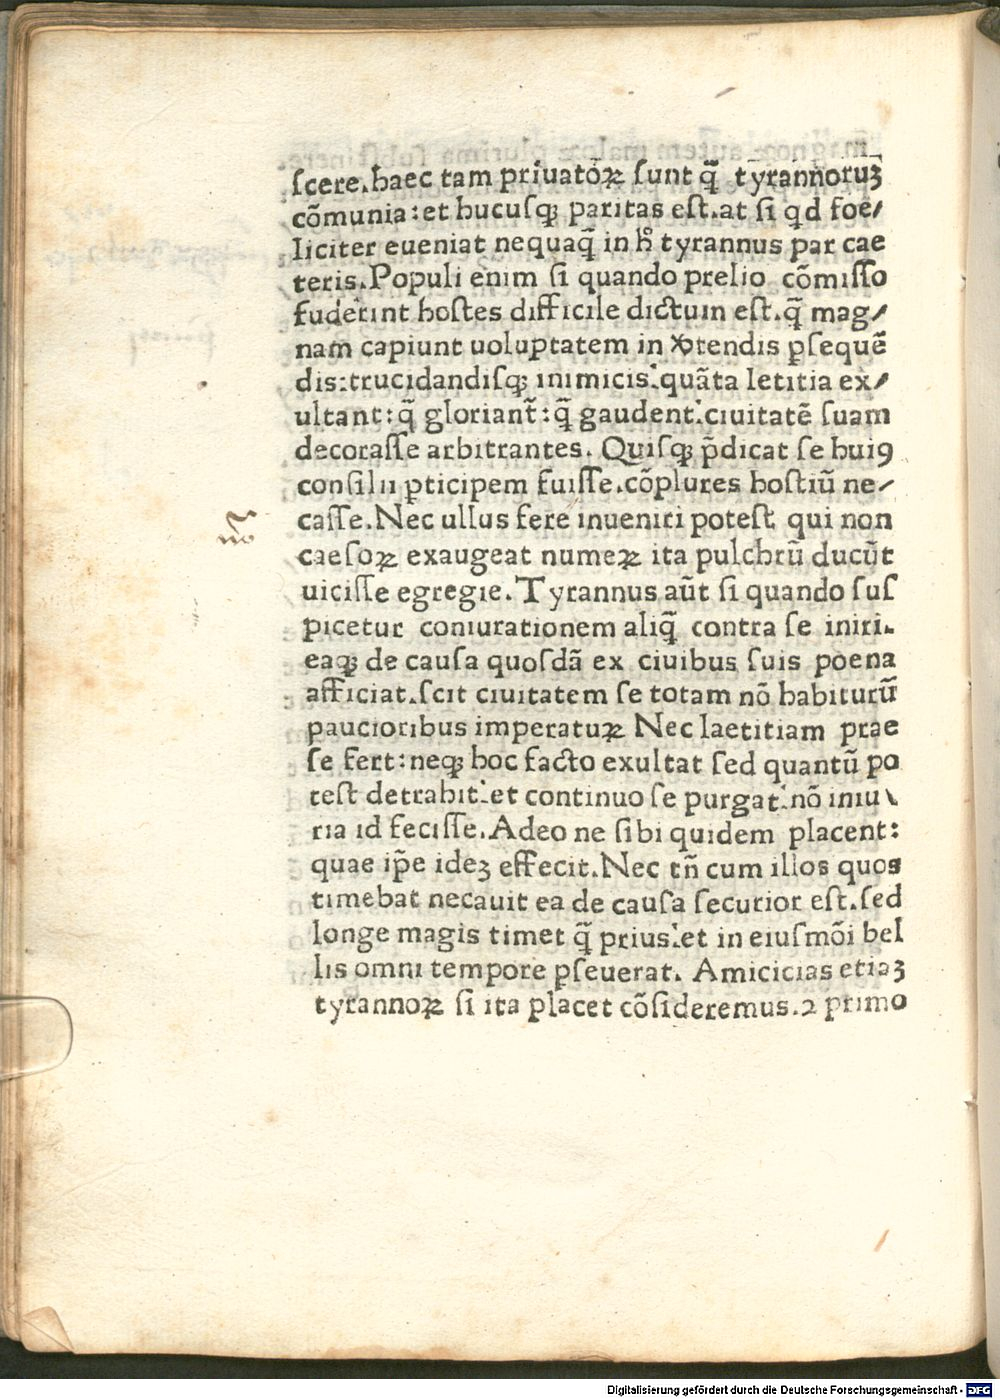 ſcere.haec tam priuatoꝝ ſunt q̃ tyrannoruꝫ
cõmunia:et hucuſqꝫ paritas eſt.at ſi qd foe/
liciter eueniat nequaq̃ in h̊ tyrannus par cae
teris.Populi enim ſi quando prelio cõmiſſo
fuderint hoſtes difficile dictum eſt.q̃ mag/
nam capiunt uoluptatem in tendis ꝑſequẽ
dis:trucidandiſqꝫ inimicis:quãta letitia ex/
ultant:q̃ gloriant̃:q̃ gaudent:ciuitatẽ ſuam
decoraſſe arbitrantes. Quiſqꝫ p̃dicat ſe huiꝯ
conſilii ꝑticipem fuiſſe.cõplures hoſtiũ ne/
caſſe.Nec ullus fere inueniri poteſt qui non
caeſoꝝ exaugeat numeꝝ ita pulchrũ ducũt
uiciſſe egregie.Tyrannus aũt ſi quando ſuſ
picetur coniurationem aliq̃ contra ſe iniri.
eaqꝫ de cauſa quoſdã ex ciuibus ſuis poena
afficiat.ſcit ciuitatem ſe totam nõ habiturũ
paucioribus imperatuꝝ Nec laetitiam prae
ſe fert:neqꝫ hoc facto exultat ſed quantũ po
teſt detrahit:et continuo ſe purgat:nõ iniu\
ria id feciſſe.Adeo ne ſibi quidem placent:
quae ip̃e ideꝫ effecit.Nec tñ cum illos quos
timebat necauit ea de cauſa ſecurior eſt.ſed
longe magis timet q̃ prius:et in eiuſmõi bel
lis omni tempore ꝑſeuerat. Amicicias etiaꝫ
tyrannoꝝ ſi ita placet cõſideremus.⁊ primo
Digitalisierung gefördert durch die Deutsche Forschungsgemeinschaft - DFG